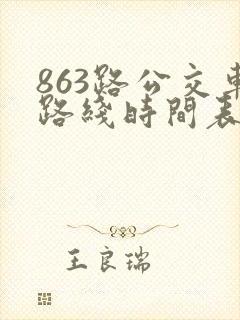 863路公交車
路綫時間表
王良瑞